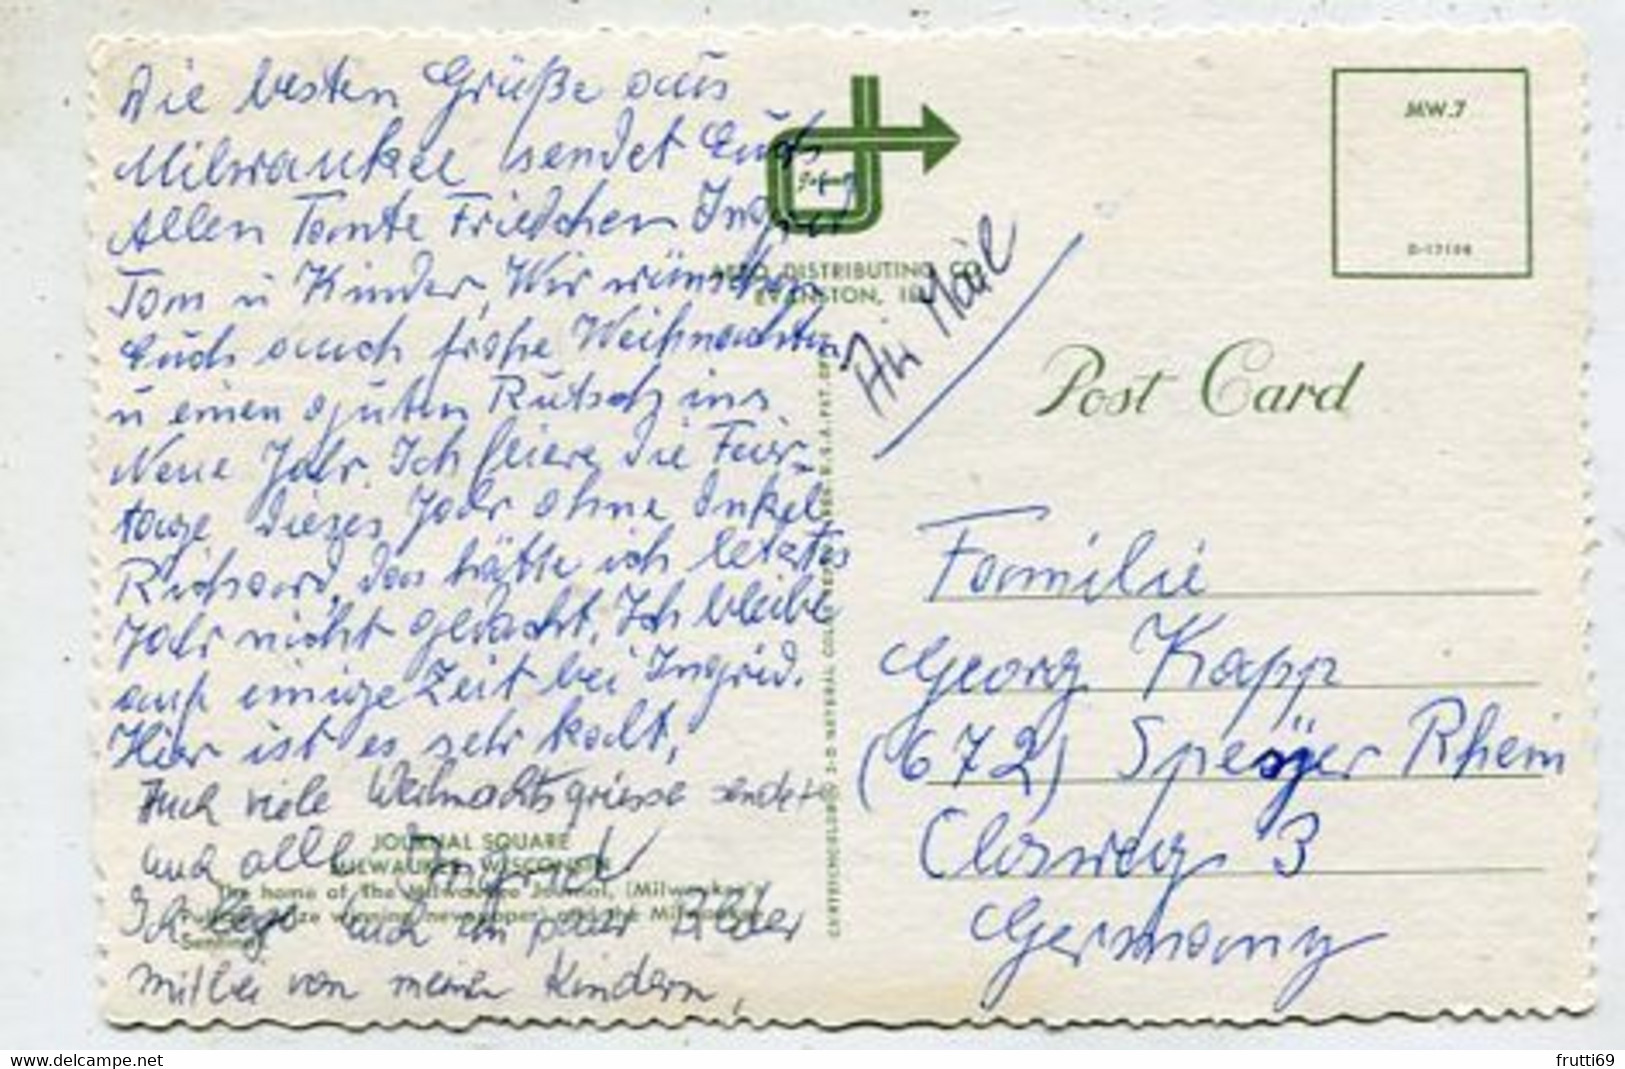 Die besten Grüße aus
Milwaukee sendet Euch
Allen Tante Friedchen Ingrid
Tom u Kinder, Wir wünschen
Euch auch frohe Weihnachten
u einen guten Rutsch ins
Neue Jahr. Ich feiere die Feier-
tage dieses Jahr ohne Onkel
Richard, das hätte ich letztes
Jahr nicht gedacht. Ich bleibe
auf einige Zeit bei Ingrid.
Hier ist es sehr kalt,
Auch viele Weihnachtsgriesse sendet
Euch alle Ingrid
Ich lege Euch ein paar Bilder
mit bei von meinen Kindern,
JOURNAL SQUARE
MILWAUKEE, WISCONSIN
The home of the Milwaukee Journal, (Milwaukee's
Pulitzer prize winning newspaper) and the Milwaukee
Sentinel.
DISTRIBUTING CO.
EVANSTON, ILL.
Air Mail
MW.7
D-17108
Post Card
Familie
Georg Kapp
(672) Speyer Rhein
Closweg 3
Germany
frutti69